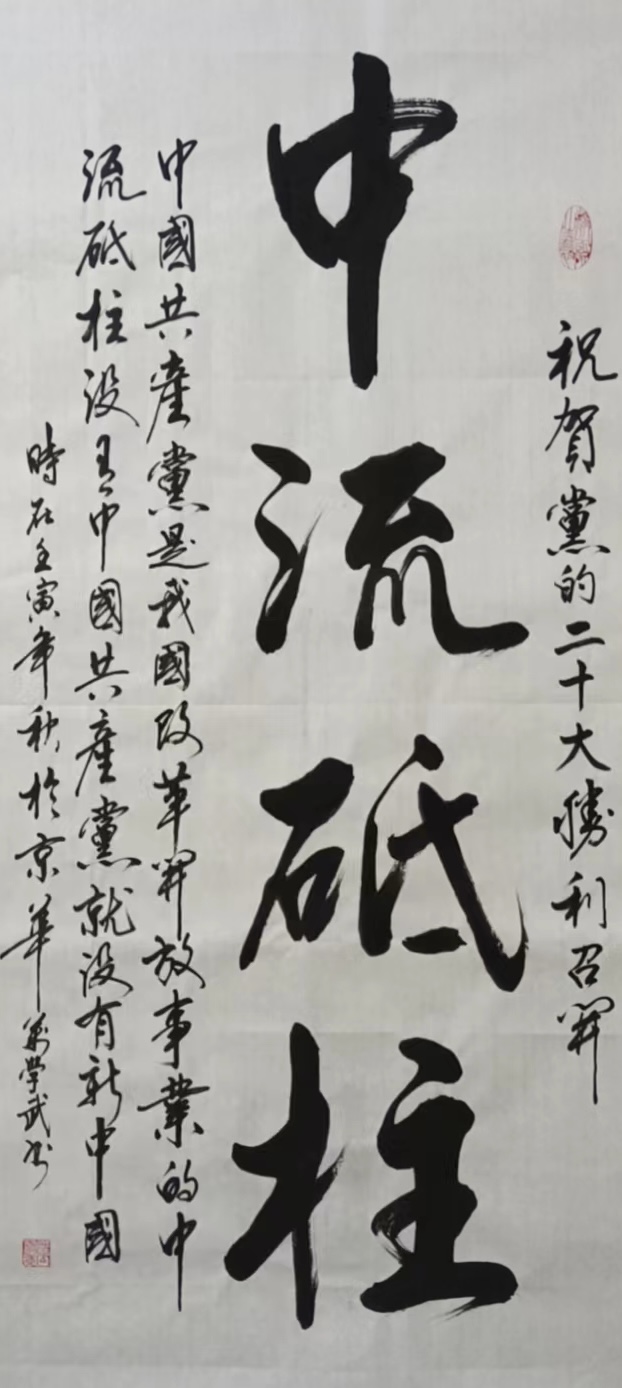 祝賀黨的二十大勝利召開
中流砥柱
中國共產黨是我國改革開放事業的中
流砥柱没有中國共產黨就没有新中國
時在壬寅年秋於京華 學武書